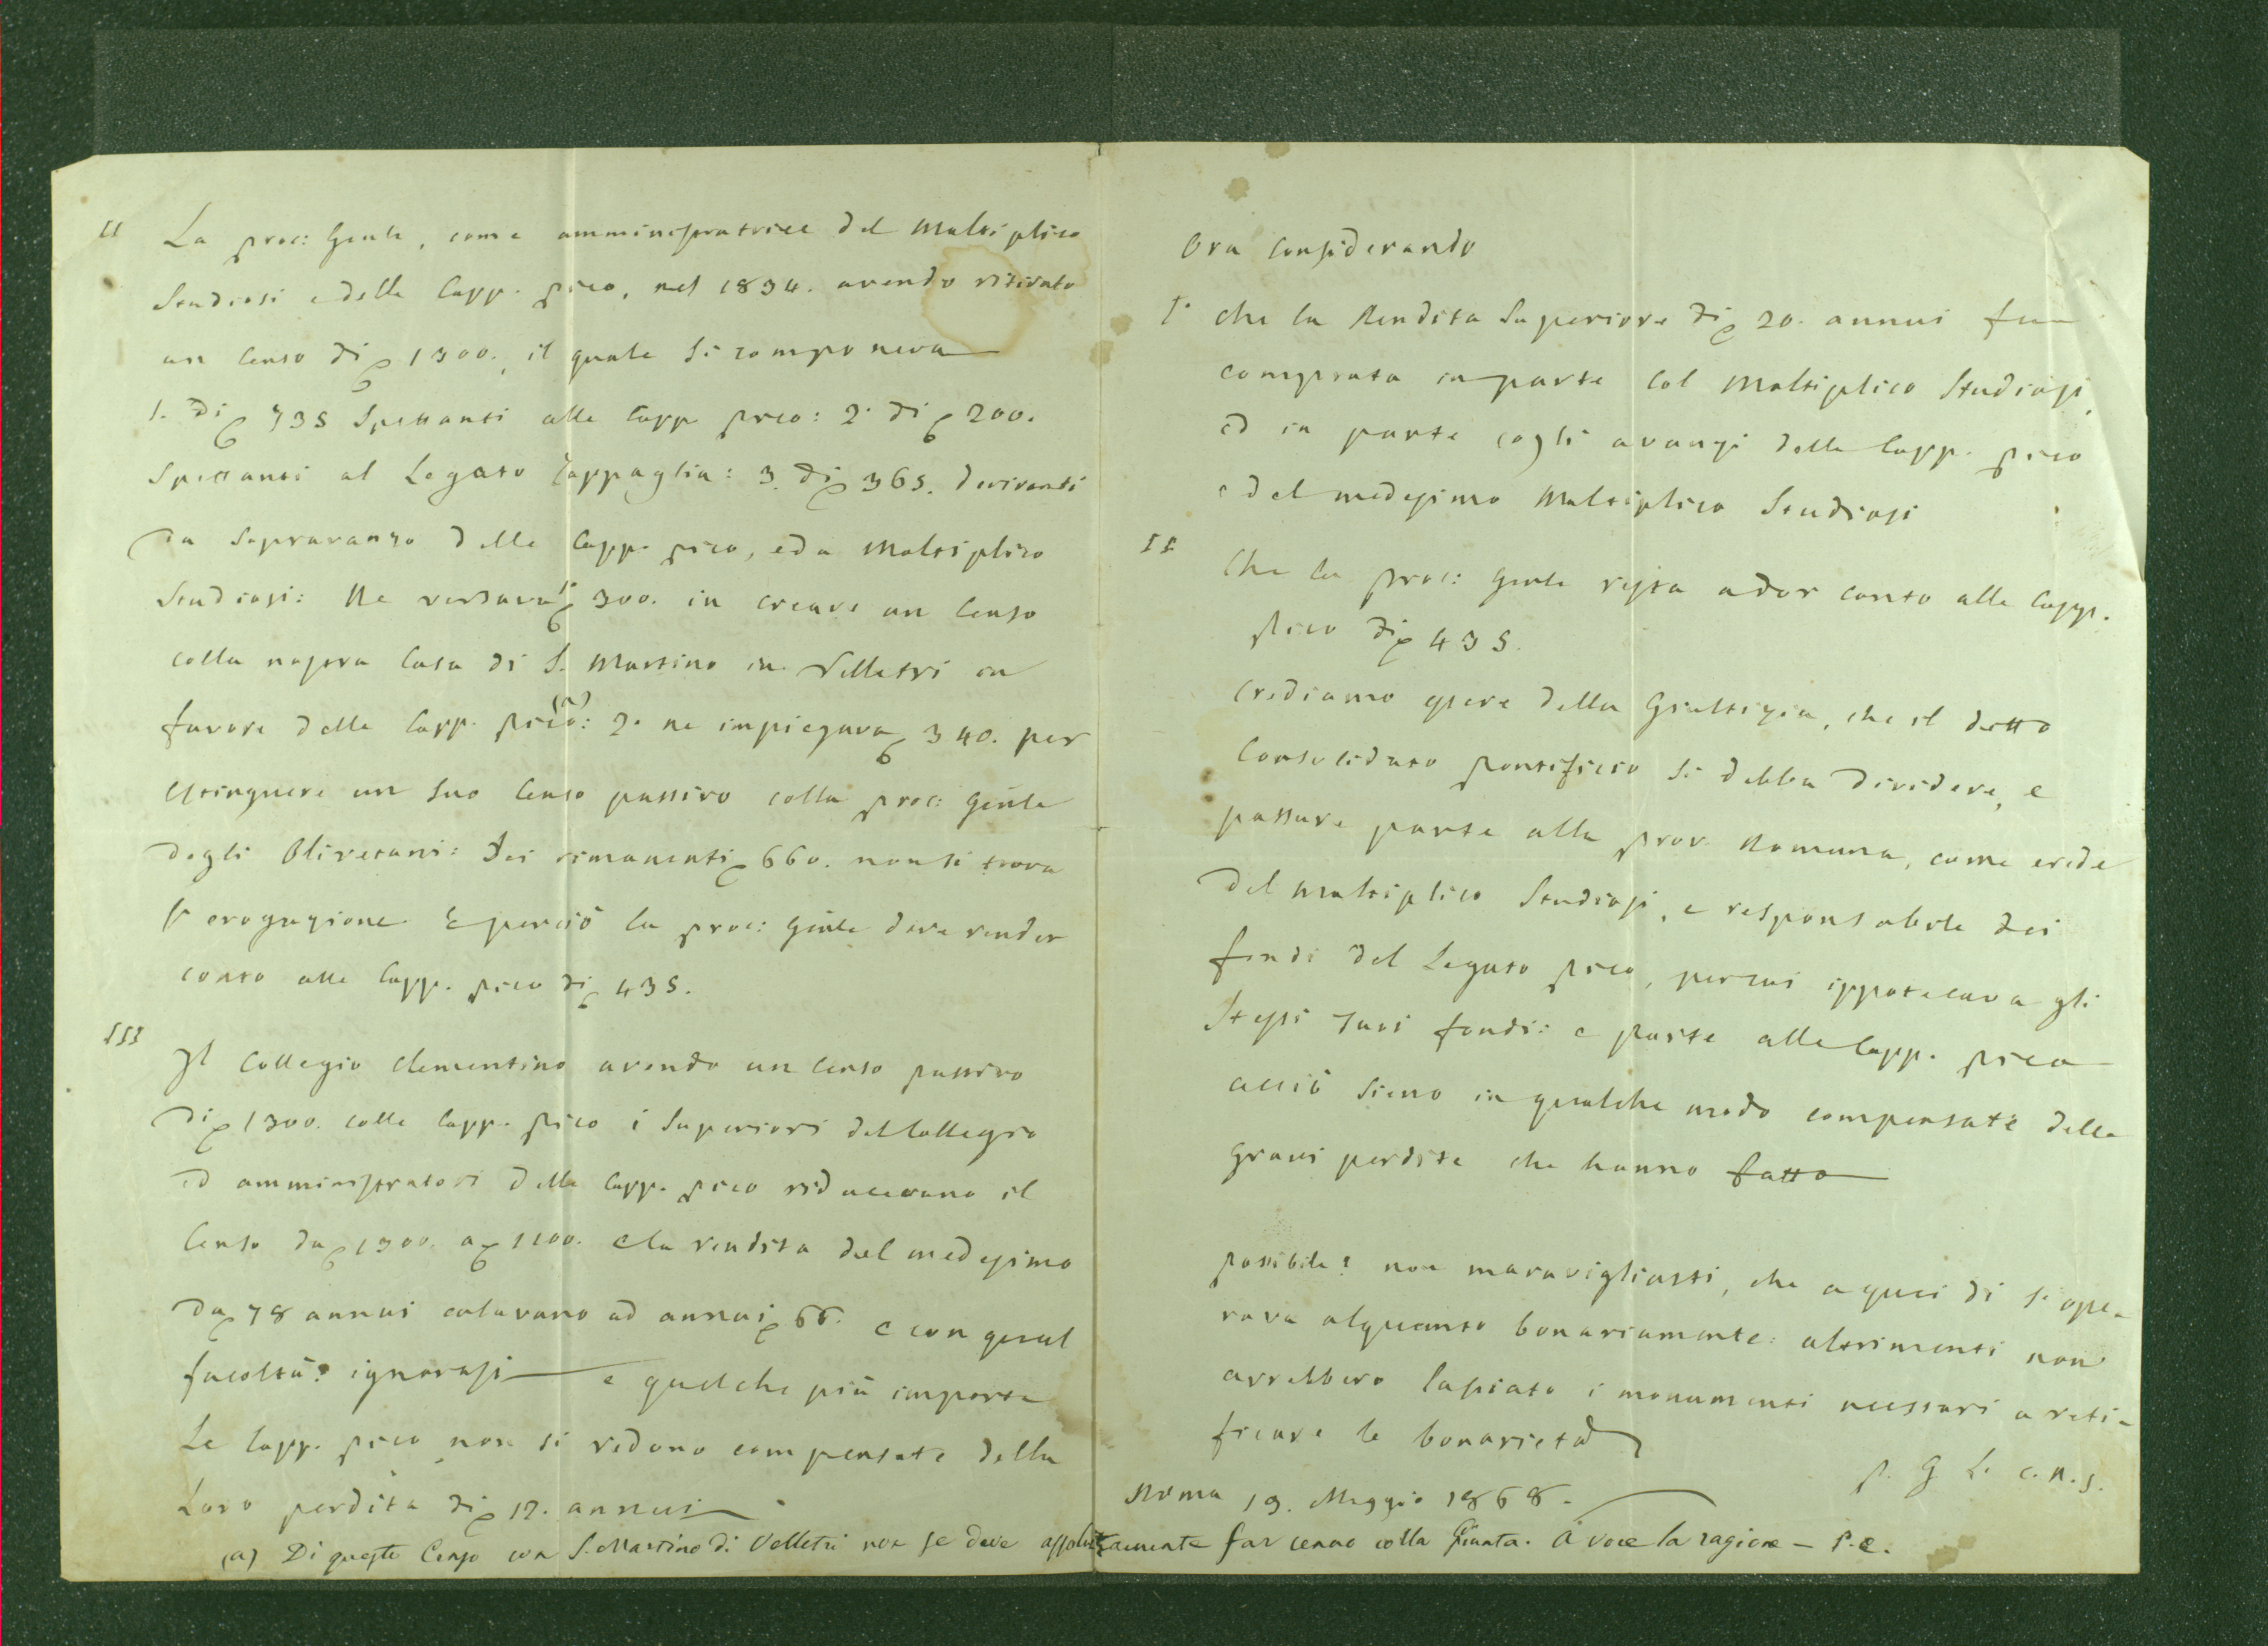 II La proc: Gnle, come amministratrice del Multiplico
Studiosi e delle Capp. Pico, nel 1834. avendo ritirato
un Censo di 1300., il quale si componeva
1. di 735 Spettanti alle Capp Pico: 2. di 200.
Spettanti al Legato Cappaglia: 3. di 365. derivanti
da Sopravanzo delle Capp. Pico, e da Moltiplico
Studiosi: Ne versava 1° 300. in creare un Censo
colla nostra Casa di S. Martino in Velletri in
favore delle Capp. Pico (a): 2. ne impiegava 340. per
estinguere un suo Censo passivo colla proc: Gnle
degli Olivetani: Dei rimanenti 660. non si trova
l'erogazione E perciò la proc: Gnle deve render
conto alle Capp. Pico di 435.
III Il Collegio Clementino avendo un Censo passivo
di 1300. colle Capp. Pico i Superiori del Collegio
ed amministratori delle Capp. Pico riducevano il
Censo da 1300. a 1100. e la rendita del medesimo
da 78 annui calavano ad annui 66. e con qual
facoltà? ignorasi e quel che più importa
Le Capp. Pico non si vedono compensate della
Loro perdita di 12. annui
(a) Di questo Censo con S. Martino di Velletri non se deve assolutamente far cenno colla Giunta. A voce la ragione — P. C.
Ora Considerando
1° che la Rendita Superiore di 20. annui fu
comprata in parte col Moltiplico Studiosi,
ed in parte cogli avanzi delle Capp. Pico
e del medesimo Multiplico Studiosi
II Che la proc: Gnle resta a dar conto alle Capp.
Pico di 435.
Crediamo essere della Giustizia, che il detto
Consolidato Pontificio si debba dividere, e
passare parte alla prov. Romana, come erede
del Multiplico Studiosi, e responsabile dei
fondi del Legato Pico, per cui ippotecava gli
Stessi suoi fondi: e parte alle Capp. Pico
acciò sieno in qualche modo compensate delle
gravi perdite che hanno fatto
possibile! non maravigliatti, che a quei dì si ope-
rava alquanto bonariamente: altrimenti non
avrebbero lasciato i monumenti necessari a reti-
ficare le bonarietà
P. G. L. c.r.s.
Roma 19. Maggio 1868.